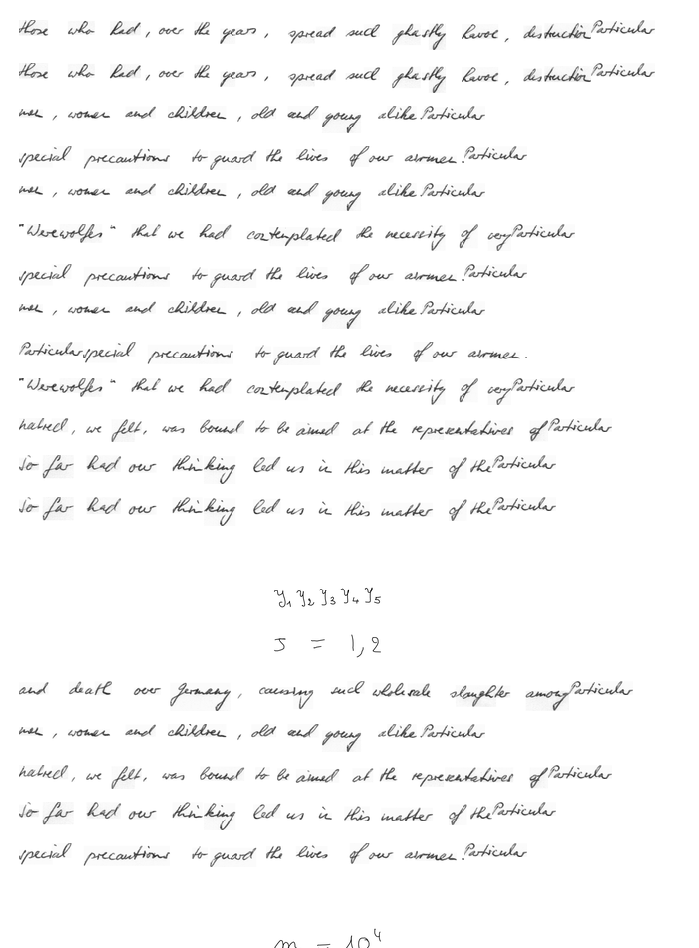 those who had, over the years, spread such ghastly havoc, destruction Particular
those who had, over the years, spread such ghastly havoc, destruction Particular
men, women and children, old and young alike Particular
special precautions to guard the lives of our airmen. Particular
men, women and children, old and young alike Particular
"Werewolfes" that we had contemplated the necessity of very Particular
special precautions to guard the lives of our airmen. Particular
men, women and children, old and young alike Particular
Particular special precautions to guard the lives of our airmen.
"Werewolfes" that we had contemplated the necessity of very Particular
hatred, we felt, was bound to be aimed at the representatives of Particular
So far had our thinking led us in this matter of the Particular
So far had our thinking led us in this matter of the Particular
y₁ y₂ y₃ y₄ y₅
J = 1,2
and death over Germany, causing such wholesale slaughter among Particular
men, women and children, old and young alike Particular
hatred, we felt, was bound to be aimed at the representatives of Particular
So far had our thinking led us in this matter of the Particular
special precautions to guard the lives of our airmen. Particular
m = 10⁴